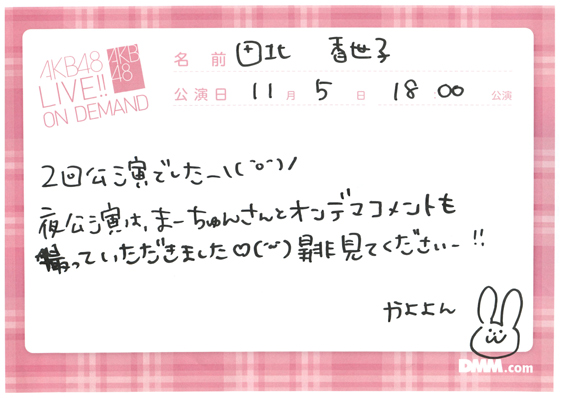 AKB48
LIVE!!
ON DEMAND
AKB
48
名前 田北 香世子
公演日 11月 5日 18 00 公演
2回公演でしたー\(^o^)/
夜公演は、まーちゅんさんとオンデマコメントも
撮っていただきました♡(^^)是非見てくださいー!!
かよよん
DMM.com